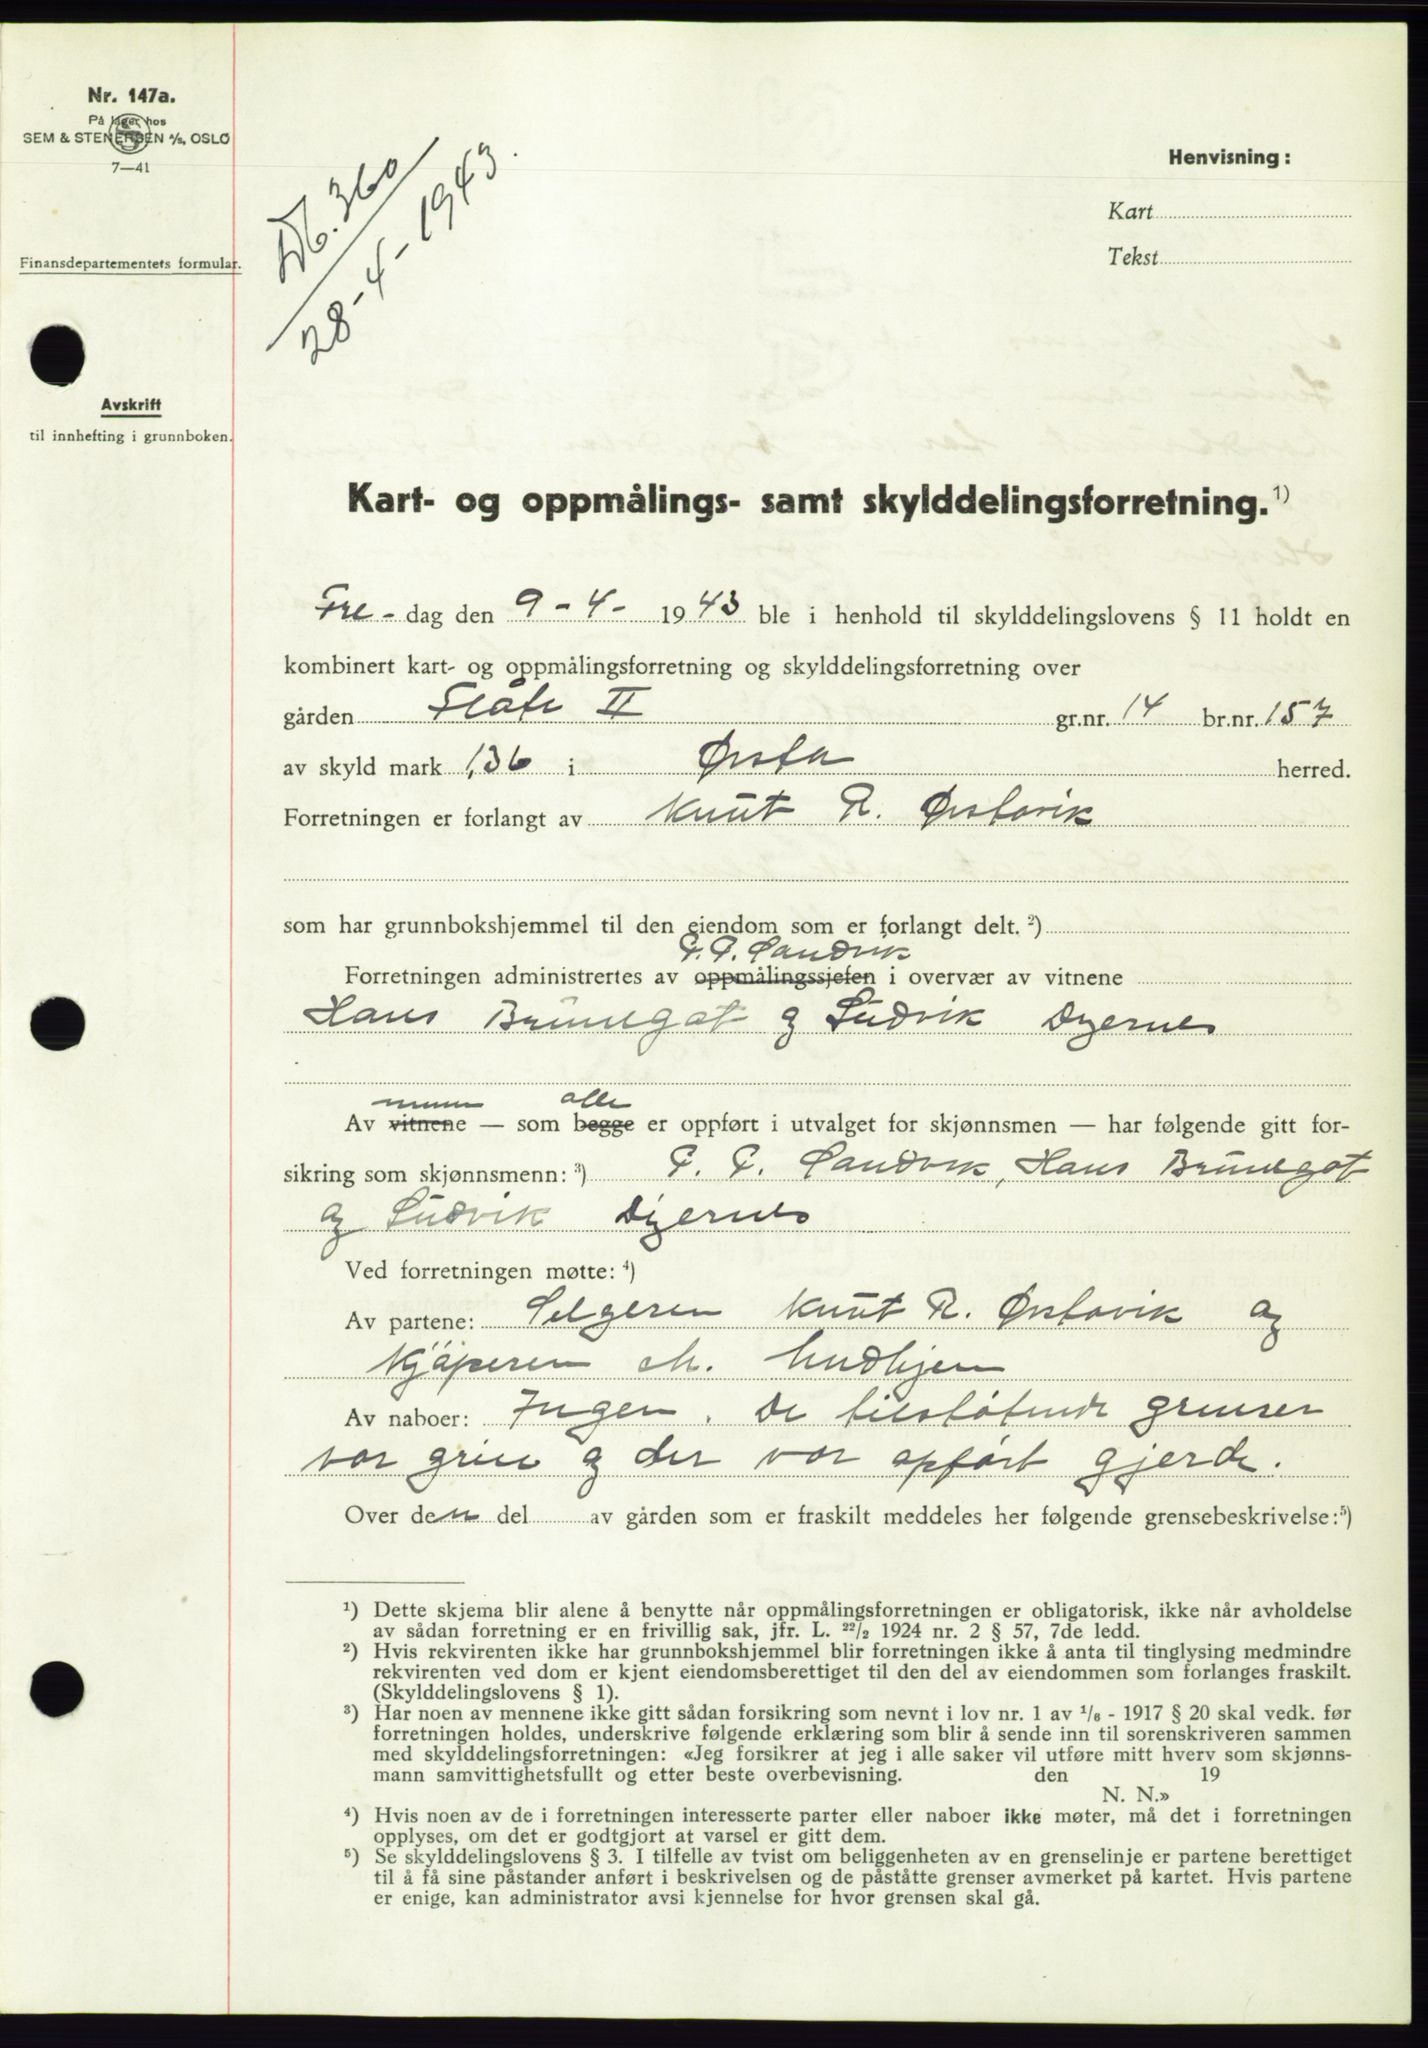 Nr. 147a.
På lager hos
SEM & STENERSEN A/S, OSLO
7—41
Finansdepartementets formular.
Avskrift
til innhefting i grunnboken.
Db. 360
28-4-1943.
Henvisning:
Kart
Tekst
Kart- og oppmålings- samt skylddelingsforretning.¹)
Fre-dag den 9-4- 1943 ble i henhold til skylddelingslovens § 11 holdt en
kombinert kart- og oppmålingsforretning og skylddelingsforretning over
gården Flåte II gr.nr. 14 br.nr. 157
av skyld mark 1,36 i Ørsta herred.
Forretningen er forlangt av Knut R. Ørstavik
som har grunnbokshjemmel til den eiendom som er forlangt delt.²)
P. P. Sandvik
Forretningen administrertes av oppmålingssjefen i overvær av vitnene
Hans Brungot og Ludvik Digernes
menn alle
Av vitnene — som begge er oppført i utvalget for skjønnsmen — har følgende gitt for-
sikring som skjønnsmenn:³) P. P. Sandvik, Hans Brungot
og Ludvik Digernes
Ved forretningen møtte:⁴)
Av partene: Selgeren Knut R. Ørstavik og
Kjøperen M. Indhjem
Av naboer: Ingen. De tilstøtende grenser
var greie og der var oppført gjerde.
Over den del av gården som er fraskilt meddeles her følgende grensebeskrivelse:⁵)
¹) Dette skjema blir alene å benytte når oppmålingsforretningen er obligatorisk, ikke når avholdelse
av sådan forretning er en frivillig sak, jfr. L. 22/2 1924 nr. 2 § 57, 7de ledd.
²) Hvis rekvirenten ikke har grunnbokshjemmel blir forretningen ikke å anta til tinglysing medmindre
rekvirenten ved dom er kjent eiendomsberettiget til den del av eiendommen som forlanges fraskilt.
(Skylddelingslovens § 1).
³) Har noen av mennene ikke gitt sådan forsikring som nevnt i lov nr. 1 av 1/6 - 1917 § 20 skal vedk. før
forretningen holdes, underskrive følgende erklæring som blir å sende inn til sorenskriveren sammen
med skylddelingsforretningen: «Jeg forsikrer at jeg i alle saker vil utføre mitt hverv som skjønns-
mann samvittighetsfullt og etter beste overbevisning. den 19
N. N.»
⁴) Hvis noen av de i forretningen interesserte parter eller naboer ikke møter, må det i forretningen
opplyses, om det er godtgjort at varsel er gitt dem.
⁵) Se skylddelingslovens § 3. I tilfelle av tvist om beliggenheten av en grenselinje er partene berettiget
til å få sine påstander anført i beskrivelsen og de påståtte grenser avmerket på kartet. Hvis partene
er enige, kan administrator avsi kjennelse for hvor grensen skal gå.